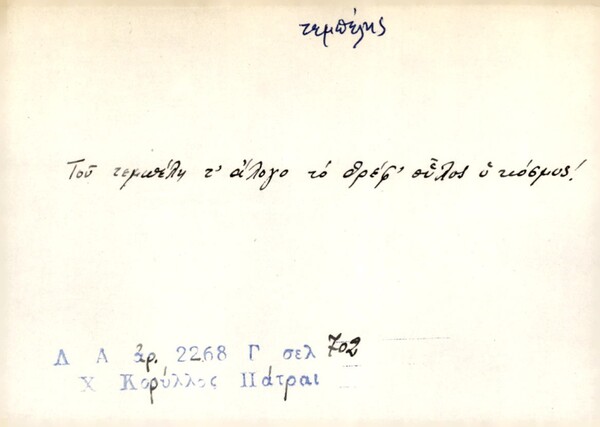 τεμπέλης
Τοῦ τεμπέλη τ' ἄλογο τὸ θρέφ' οὗλος ὁ κόσμος!
Λ Α ἀρ. 2268 Γ σελ 702
Χ Κορύλλος Πάτραι